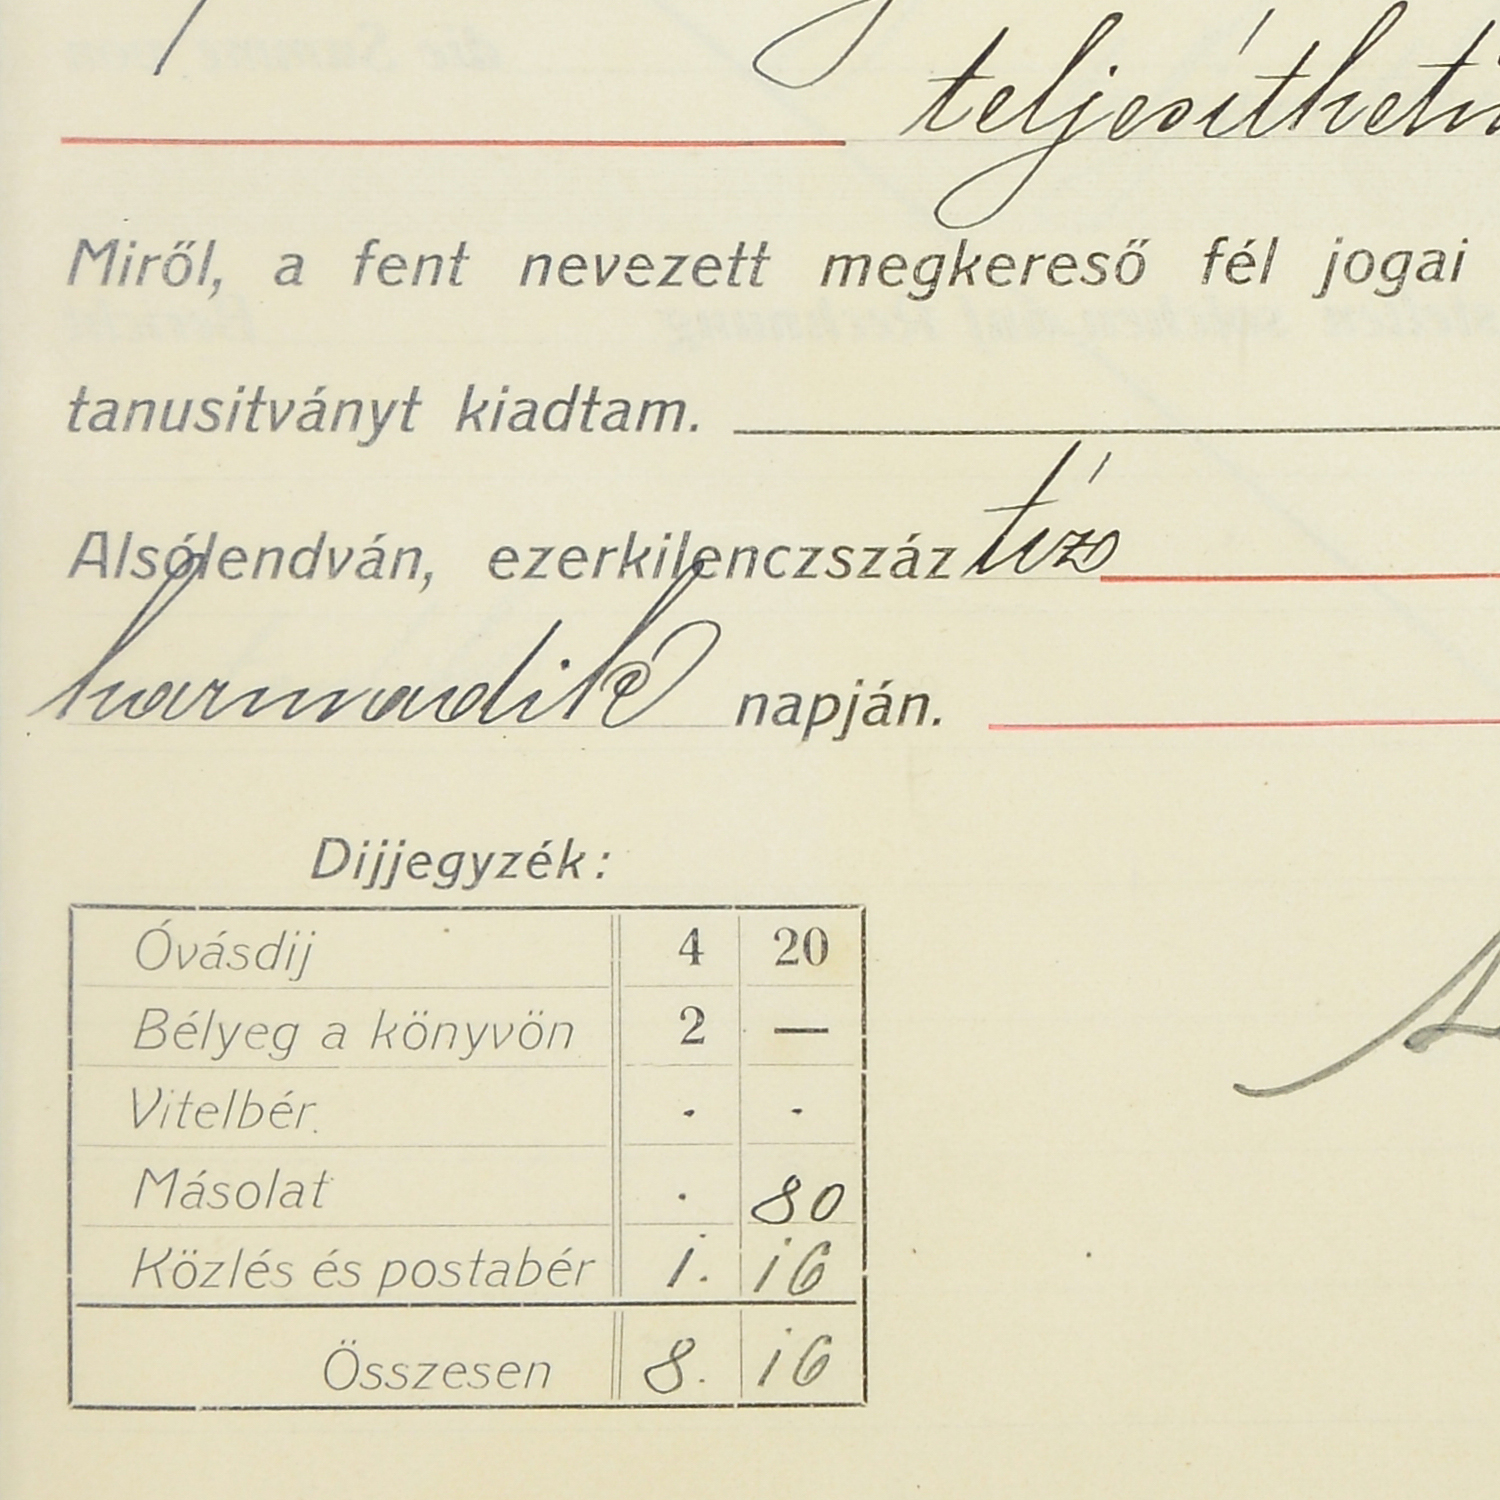 teljesíthető
Miről, a fent nevezett megkereső fél jogai
tanusitványt kiadtam.
Alsólendván, ezerkilenczszáz tíz
harmadik napján.
Dijjegyzék:
Óvásdij 4 20
Bélyeg a könyvön 2 —
Vitelbér. . .
Másolat . 80
Közlés és postabér 1. 16
Összesen 8. 16